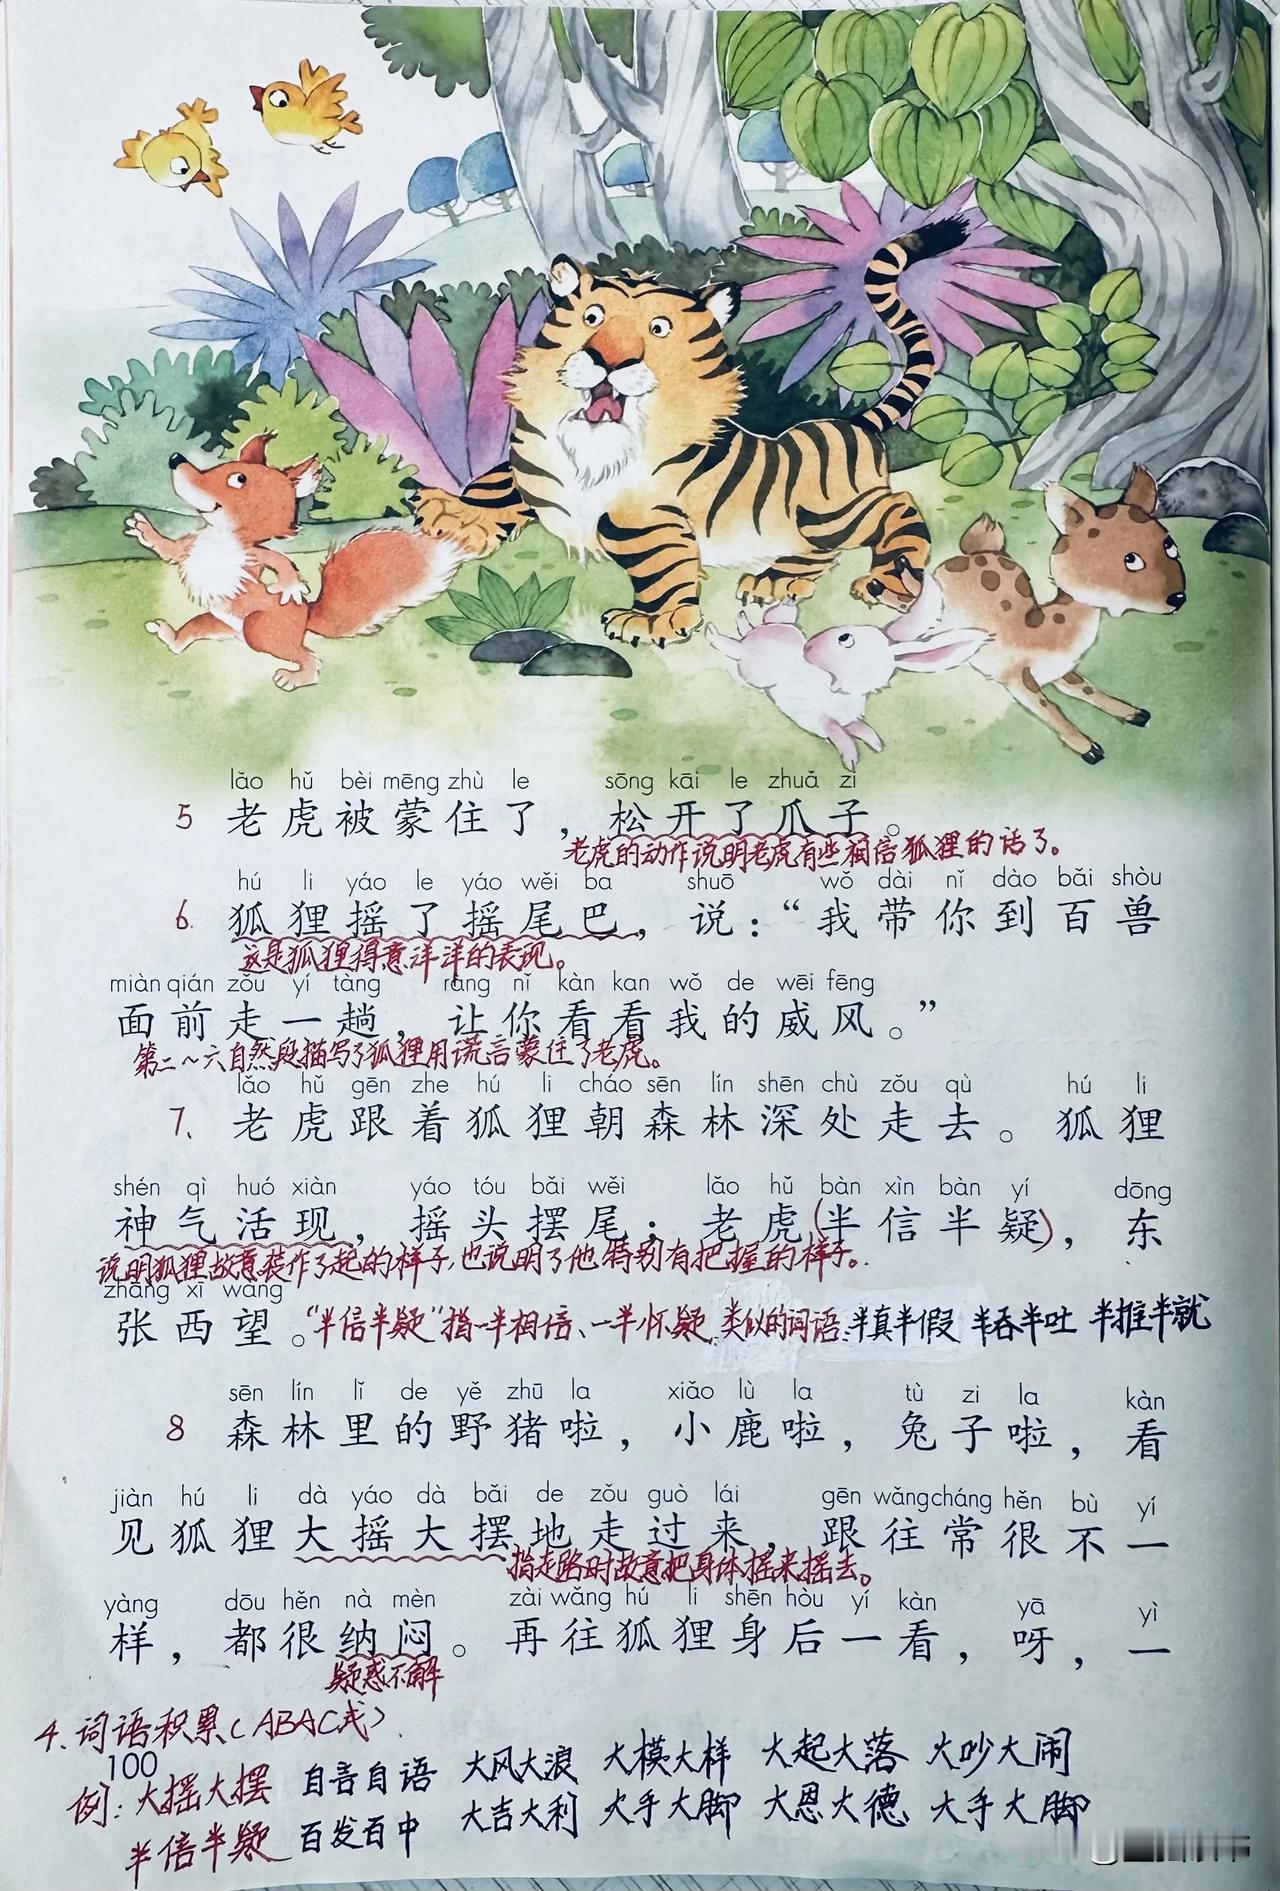 lǎo hǔ bèi mēng zhù le sōng kāi le zhuǎ zi
5 老虎被蒙住了，松开了爪子。
老虎的动作说明老虎有些相信狐狸的话了。
hú li yáo le yáo wěi ba shuō wǒ dài nǐ dào bǎi shòu
6. 狐狸摇了摇尾巴，说：“我带你到百兽
这是狐狸得意洋洋的表现。
miàn qián zǒu yí tàng ràng nǐ kàn kan wǒ de wēi fēng
面前走一趟，让你看看我的威风。”
第二～六自然段描写了狐狸用谎言蒙住了老虎。
lǎo hǔ gēn zhe hú li cháo sēn lín shēn chù zǒu qù hú li
7、老虎跟着狐狸朝森林深处走去。狐狸
shén qì huó xiàn yáo tóu bǎi wěi lǎo hǔ bàn xìn bàn yí dōng
神气活现，摇头摆尾；老虎（半信半疑），东
说明狐狸故意装作了起的样子，也说明了他特别有把握的样子。
zhāng xī wàng
张西望。“半信半疑”指一半相信、一半怀疑 类似的词语 半真半假 半吞半吐 半推半就
sēn lín lǐ de yě zhū la xiǎo lù la tù zi la kàn
8 森林里的野猪啦，小鹿啦，兔子啦，看
jiàn hú li dà yáo dà bǎi de zǒu guò lái gēn wǎng cháng hěn bù yí
见狐狸大摇大摆地走过来，跟往常很不一
指走路时故意把身体摇来摇去。
yàng dōu hěn nà mèn zài wǎng hú li shēn hòu yí kàn yā yì
样，都很纳闷。再往狐狸身后一看，呀，一
疑惑不解
4. 词语积累（ABAC式）
100
例：大摇大摆 自言自语 大风大浪 大模大样 大起大落 大吵大闹
半信半疑 百发百中 大吉大利 大手大脚 大恩大德 大手大脚